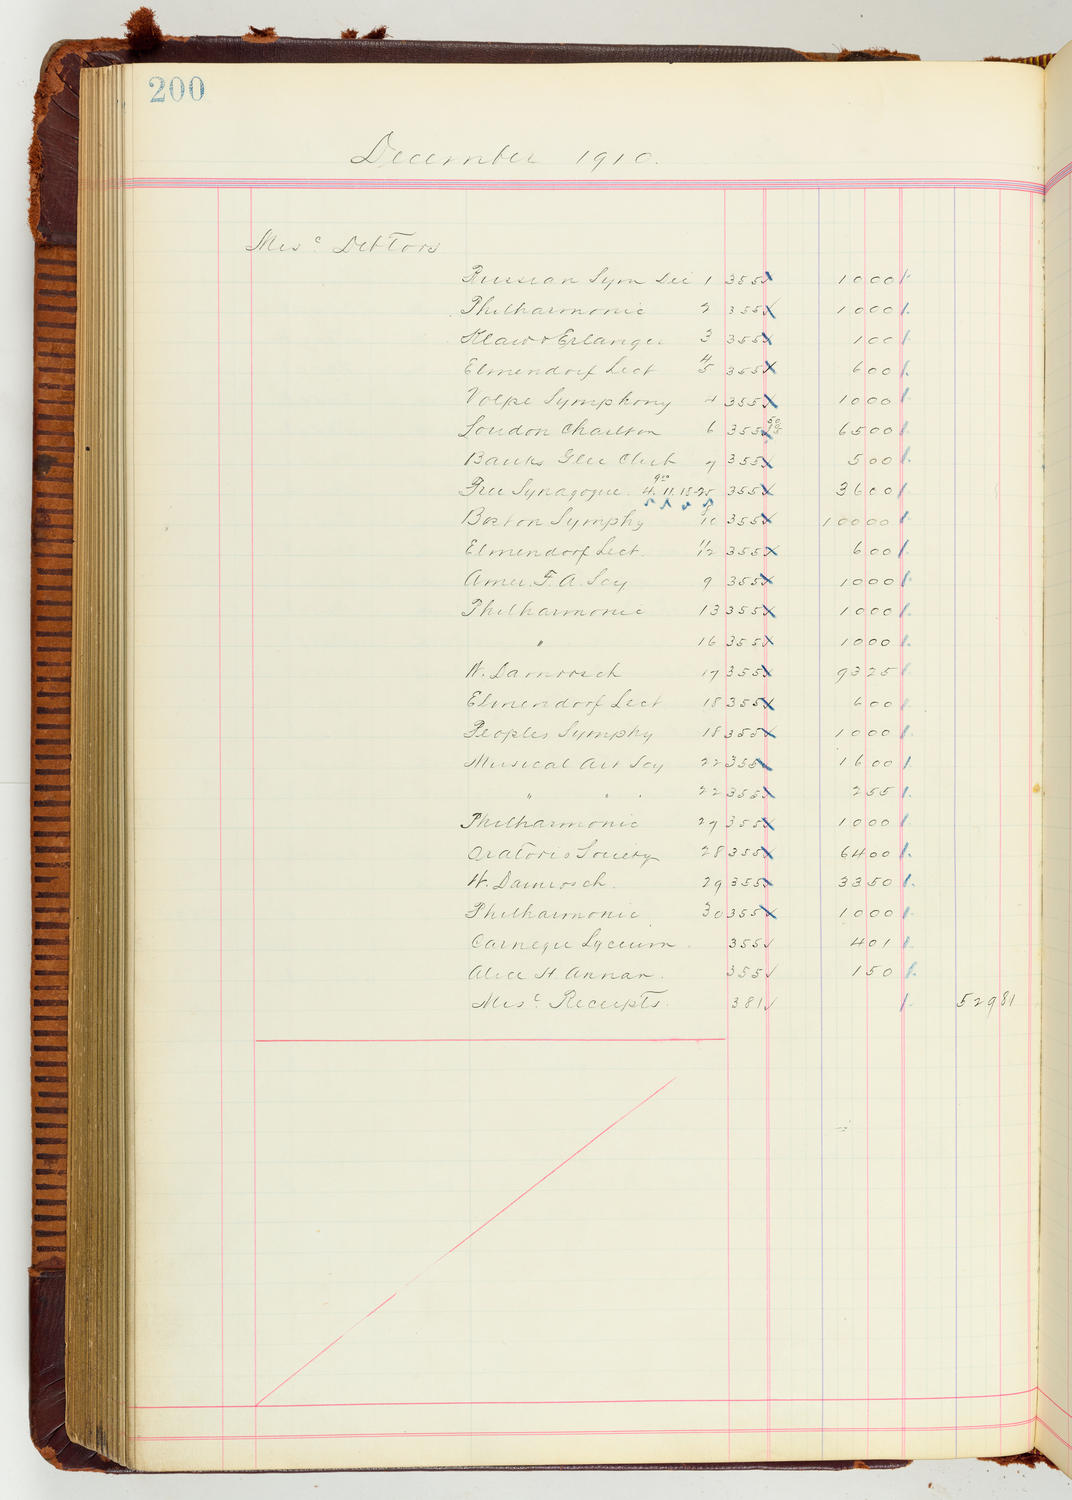 200
December 1910.
Misc Debtors
Russian Sym Dec 1 355 1000
Philharmonic 2 355 1000
Klaw & Erlanger 3 355 100
Elmendorf Lect 4/5 355 600
Volpe Symphony 4 355 1000
Loudon Charlton 6 355 6500
Banks Glee Club 7 355 500
Free Synagogue 4. 11. 18-25 355 3600
Boston Symphy 8/10 355 10000
Elmendorf Lect. 11/12 355 600
Amer. F. A. Soy 9 355 1000
Philharmonic 13 355 1000
" 16 355 1000
W. Damrosch 17 355 9325
Elmendorf Lect 18 355 600
Peoples Symphy 18 355 1000
Musical Art Soy 22 355 1600
" " " 22 355 255
Philharmonic 27 355 1000
Oratorio Society 28 355 6400
W. Damrosch. 29 355 3350
Philharmonic 30 355 1000
Carnegie Lyceum 355 401
Alice H. Annan. 355 150
Misc Receipts 381 52981